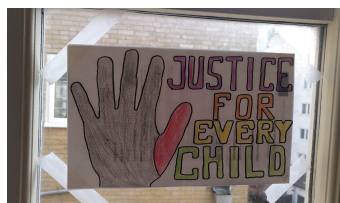 JUSTICE
FOR
EVERY
CHILD